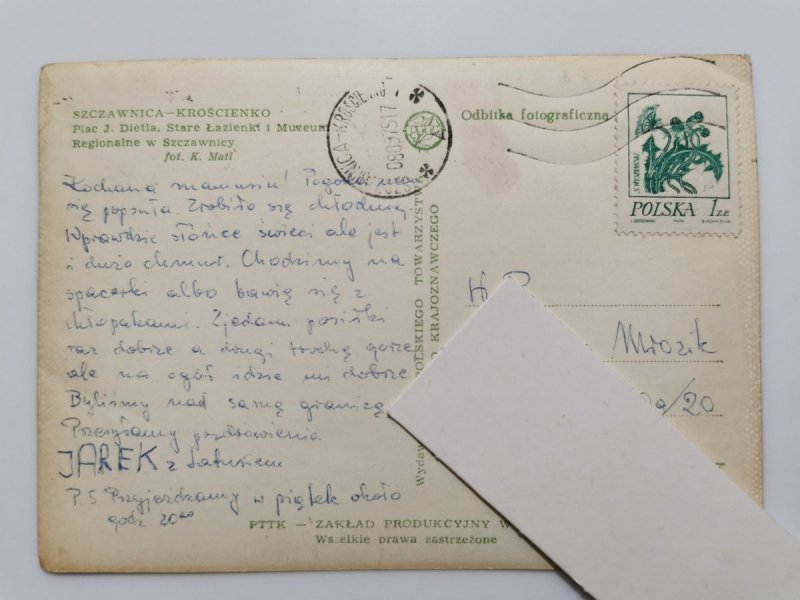 SZCZAWNICA—KROŚCIENKO
Plac J. Dietla, Stare Łazienki i Muzeum
Regionalne w Szczawnicy
fot. K. Matl
Odbitka fotograficzna
Kochana mamusiu! Pogoda nam
się popsuła. Zrobiło się chłodniej.
Wprawdzie słońce świeci ale jest
i dużo chmur. Chodzimy na
spacerki albo bawię się z
chłopakami. Zjadam posiłki
raz dobrze a drugi trochę gorzej
ale na ogół idzie mi dobrze
Byliśmy nad samą granicą
Przesyłamy pozdrowienia
JAREK z tatusiem
P.S. Przyjeżdżamy w piątek około
godz 20⁰⁰
POLSKIEGO TOWARZYSTW
O KRAJOZNAWCZEGO
Wydaw
S. WYSPIAŃSKI
POLSKA 1 ZŁ
Mrozik
/20
PTTK — ZAKŁAD PRODUKCYJNY W
Wszelkie prawa zastrzeżone